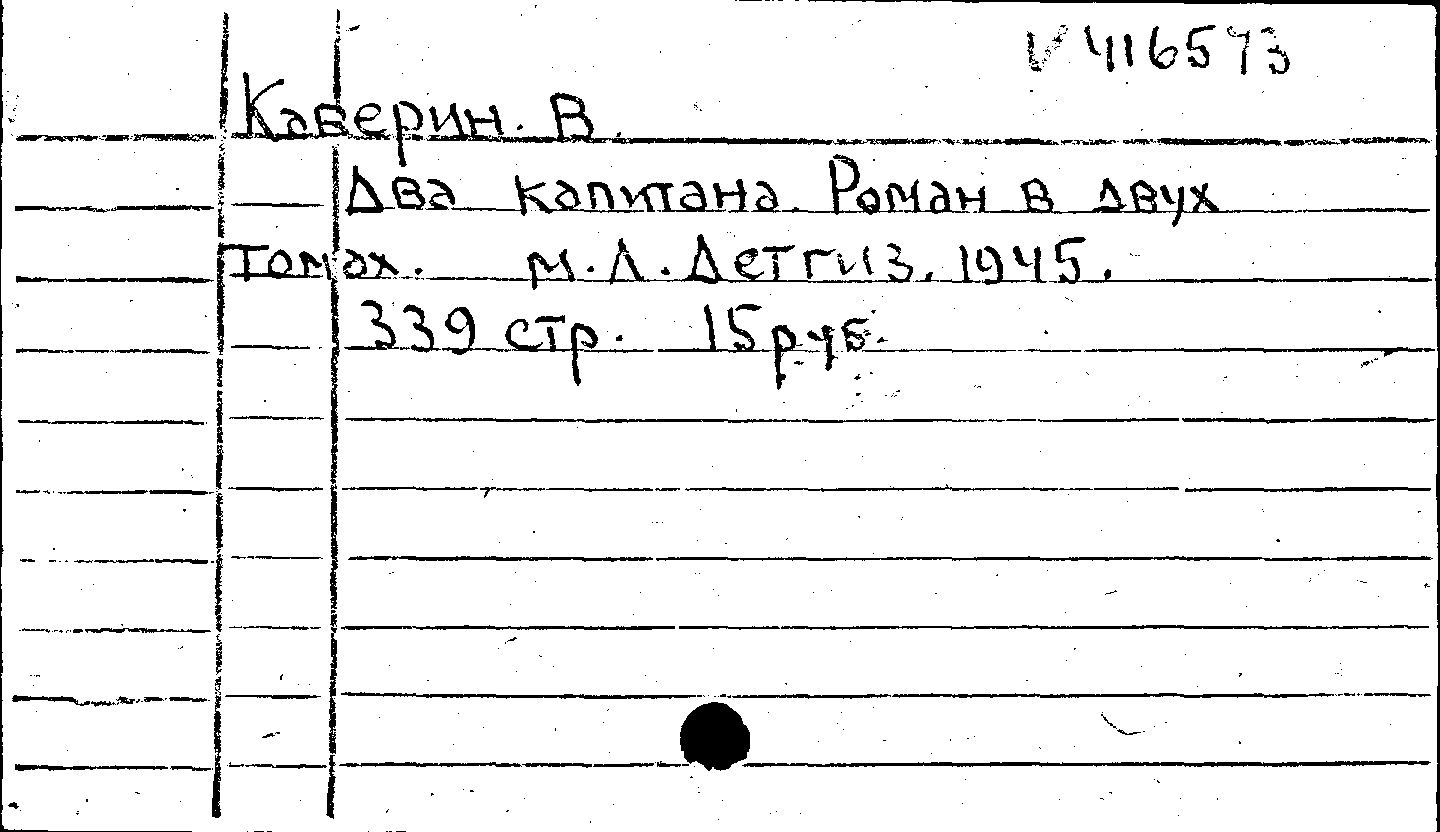 V 416573
Каверин. В.
Два капитана. Роман в двух
томах. М.Л. Детгиз. 1945.
339 стр. 15 руб.